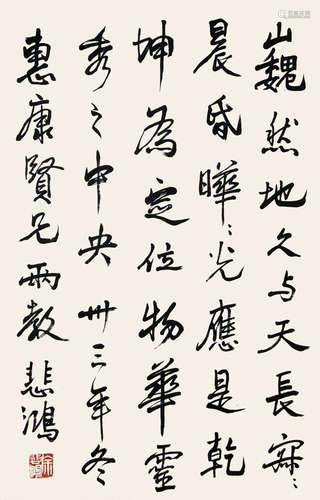 山巍然地久与天長寂〻
晨昏曄〻光應是乾
坤為定位物華靈
秀之中央 卅三年冬
惠康賢兄兩教 悲鴻